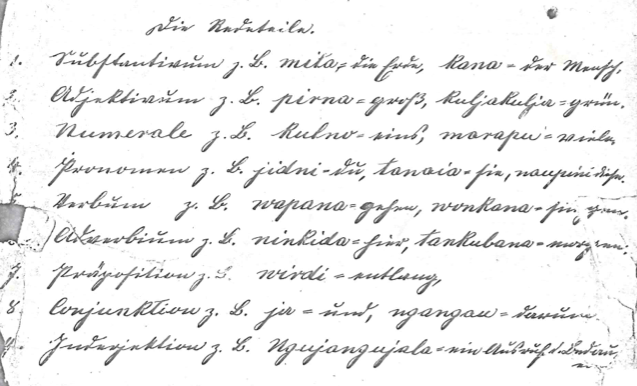 Die Redeteile.
1. Substantivum z. B. mita = die Erde, kana = der Mensch.
2. Adjektivum z. B. pirna = groß, kuljakulja = grün.
3. Numerale z. B. kulno = eins, marapu = viele,
4. Pronomen z. B. jidni - du, tanaia = sie, naupini diese.
Verbum z. B. wapana = gehen, wonkana = singen.
Adverbium z. B. ninkida = hier, tankubana = morgen.
7. Präposition z. B. wirdi = entlang,
8 Conjunktion z. B. ja = und, ngangau = darum
Inderjektion z. B. Ngujangujala = ein Ausruf d. Bedau